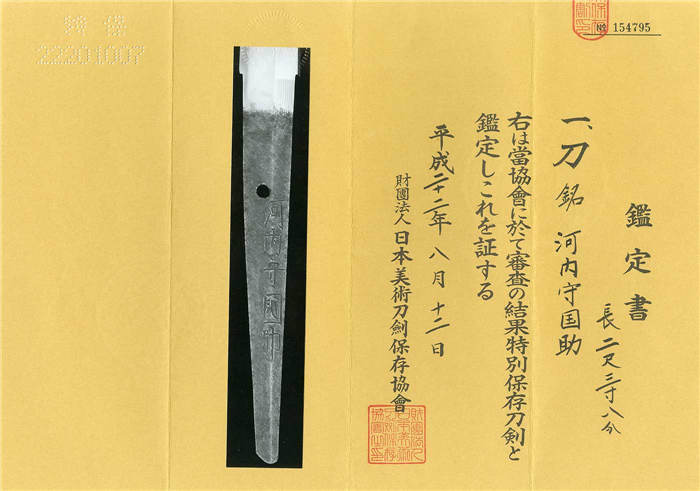 № 154795
鑑定書
一、刀 銘 河内守国助
長 二尺三寸八分
右は當協會に於て審査の結果特別保存刀剣と
鑑定しこれを証する
平成二十二年 八月 十二日
財團法人 日本美術刀剣保存協會
特保
22201007
河内守國助